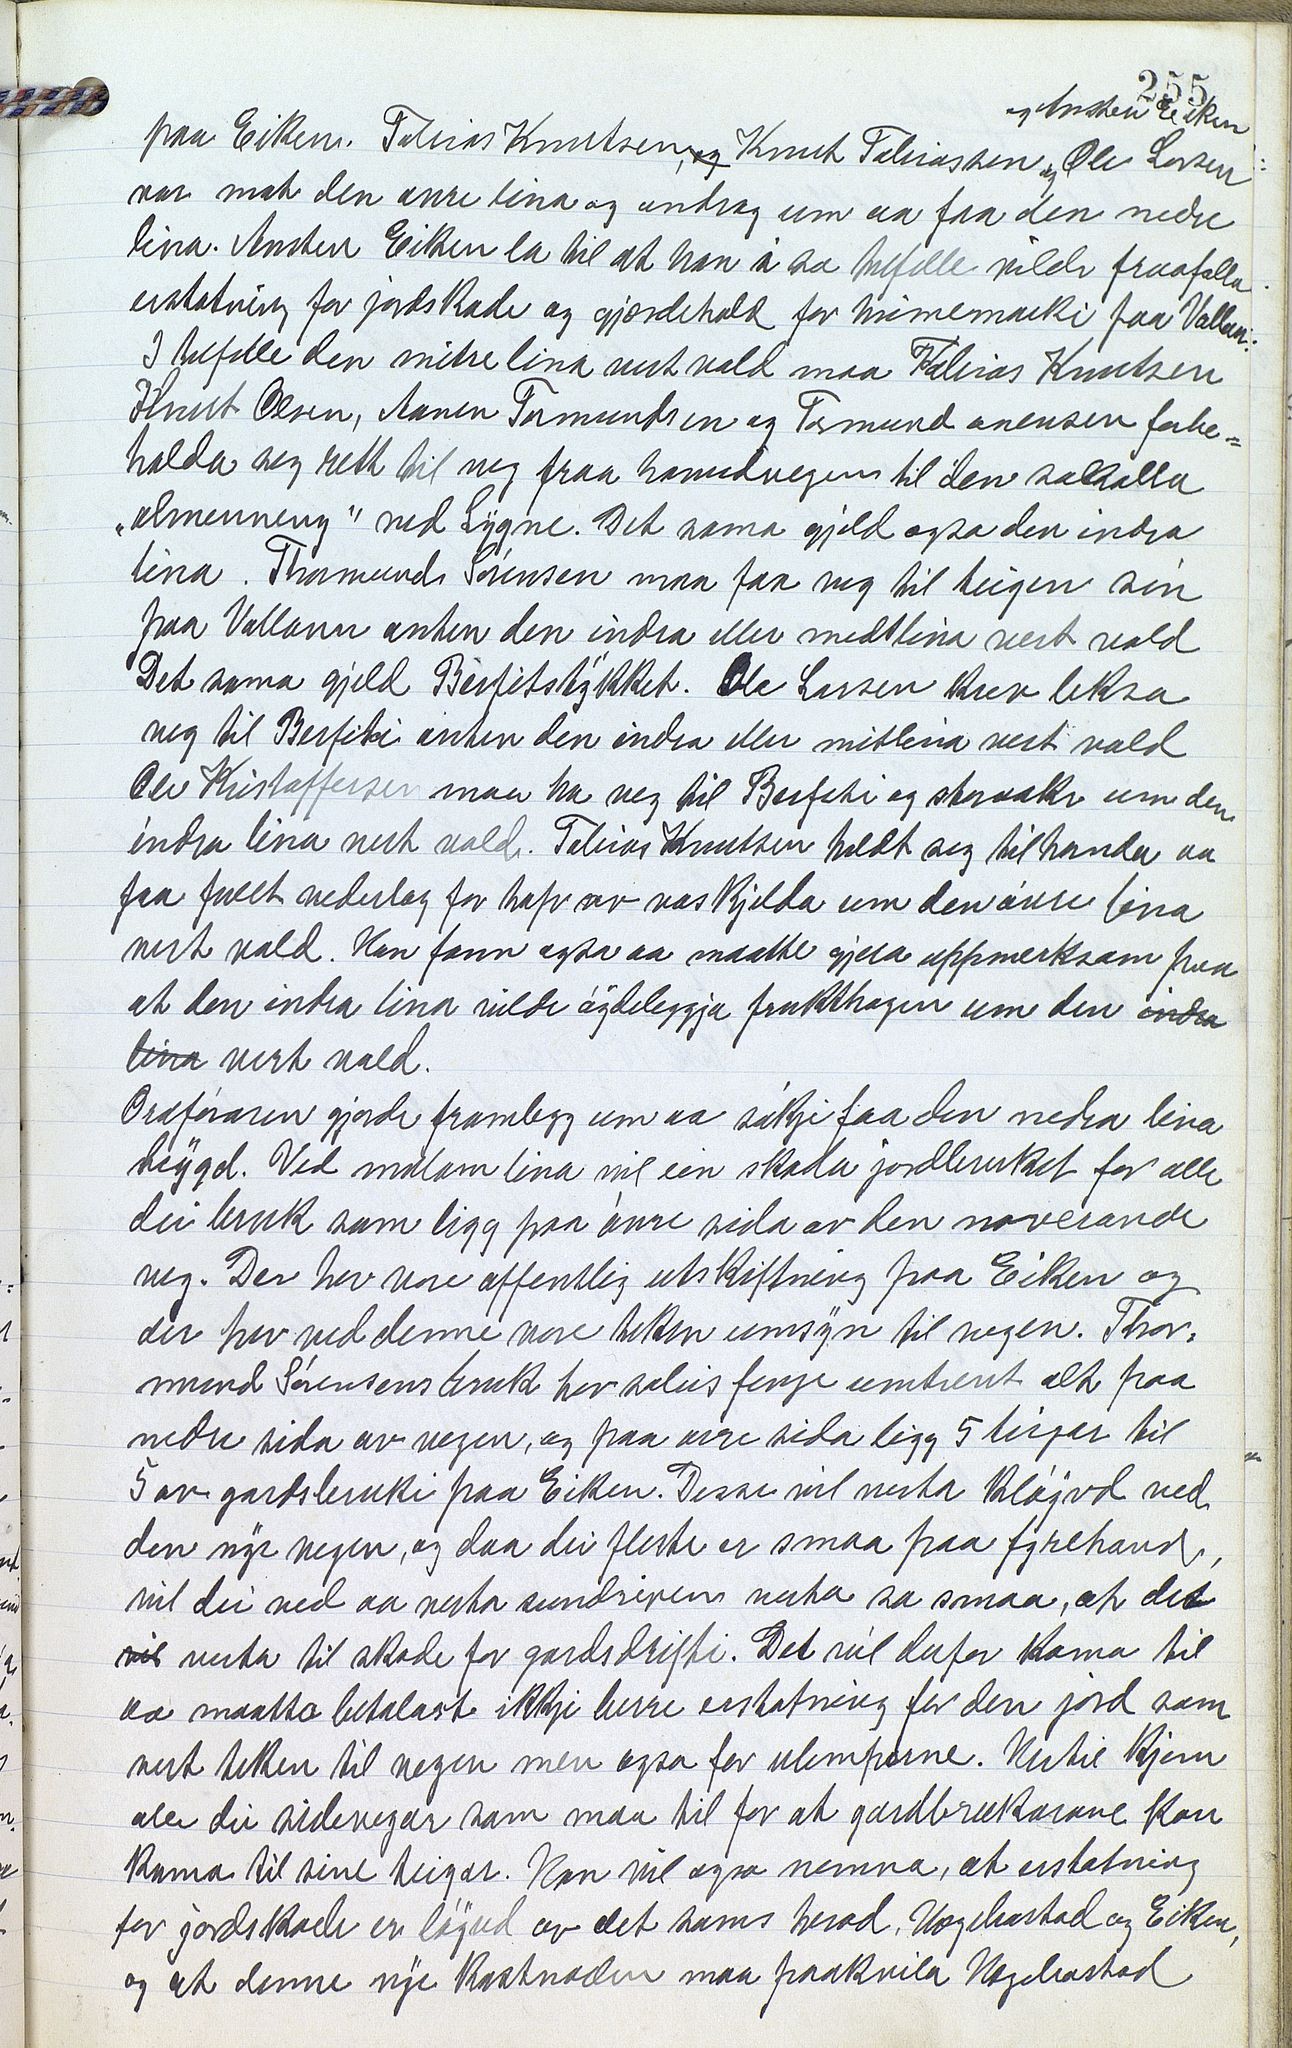 255
og Ansten Eiken
paa Eiken. Tobias Knutsen, og Knut Tobiassen og Ole Larsen
var mot den øvre lina og androg um aa faa den nedre
lina. Ansten Eiken la til at han i sa tilfelle vilde fraafalla
erstatning for jordskade og gjerdehald for heimemarki paa Vallan:
I tilfelle den mitre lina vert vald maa Tobias Knutsen
Knut Olsen, Aanen Tormundsen og Tormund Anensen forbe=
halda seg rett til veg fraa hovedvegen til den sokalla
"almenneng" ved Lygne. Det sama gjeld ogsa den indra
lina. Thormund Sörensen maa faa veg til teigen sin
paa Vallann anten den indra eller medtlina vert vald
Det sama gjeld Berfitstÿkket. Ole Larsen krev likso
veg til Berfiti anten den indra eller mitlina vert vald
Ole Kristoffersen maa ha veg til Berfiti og storaaker um den
indra lina vert vald. Tobias Knutsen heldt seg tilhanda aa
faa fullt vederlag for tap av vaskjelda um den övre lina
vert vald. Han fann ogsa aa maatte gjera uppmerksam paa
at den indra lina vilde öydeleggja frukthagen um den indra
lina vert vald.
Ordföraren gjorde framlegg um aa sökje faa den nedra lina
bÿgd. Ved mellom lina vil ein skada jordbruket for alle
dei bruk som ligg paa övre sida av den noverande
veg. Der hev vore offentlig utskiftning paa Eiken og
der hev ved denne vore teken umsÿn til vegen. Thor=
mund Sörensens bruk hev soleis fenge umtrent alt paa
nedre sida av vegen, og paa övre sida ligg 5 teigar til
5 av gardsbruki paa Eiken. Desse vil verta klöyvd ved
den nye vegen, og daa dei fleste er smaa paa fyrehand,
vil dei ved aa verta sundriven verta so smaa, at det
vil verta til skade for gardsdrifti. Det vil derfor koma til
aa maatta betalast ikkje berre erstatning for den jord som
vert teken til vegen men ogsa for ulemperne. Vertil kjem
alle dei sidevegar som maa til for at gardbrukarane kan
koma til sine teigar. Han vil ogso nemna, at erstatning
for jordskade er löyvd av det sams herad, Hægebostad og Eiken,
og at denne nye kostnaden maa paakvila Hægebostad